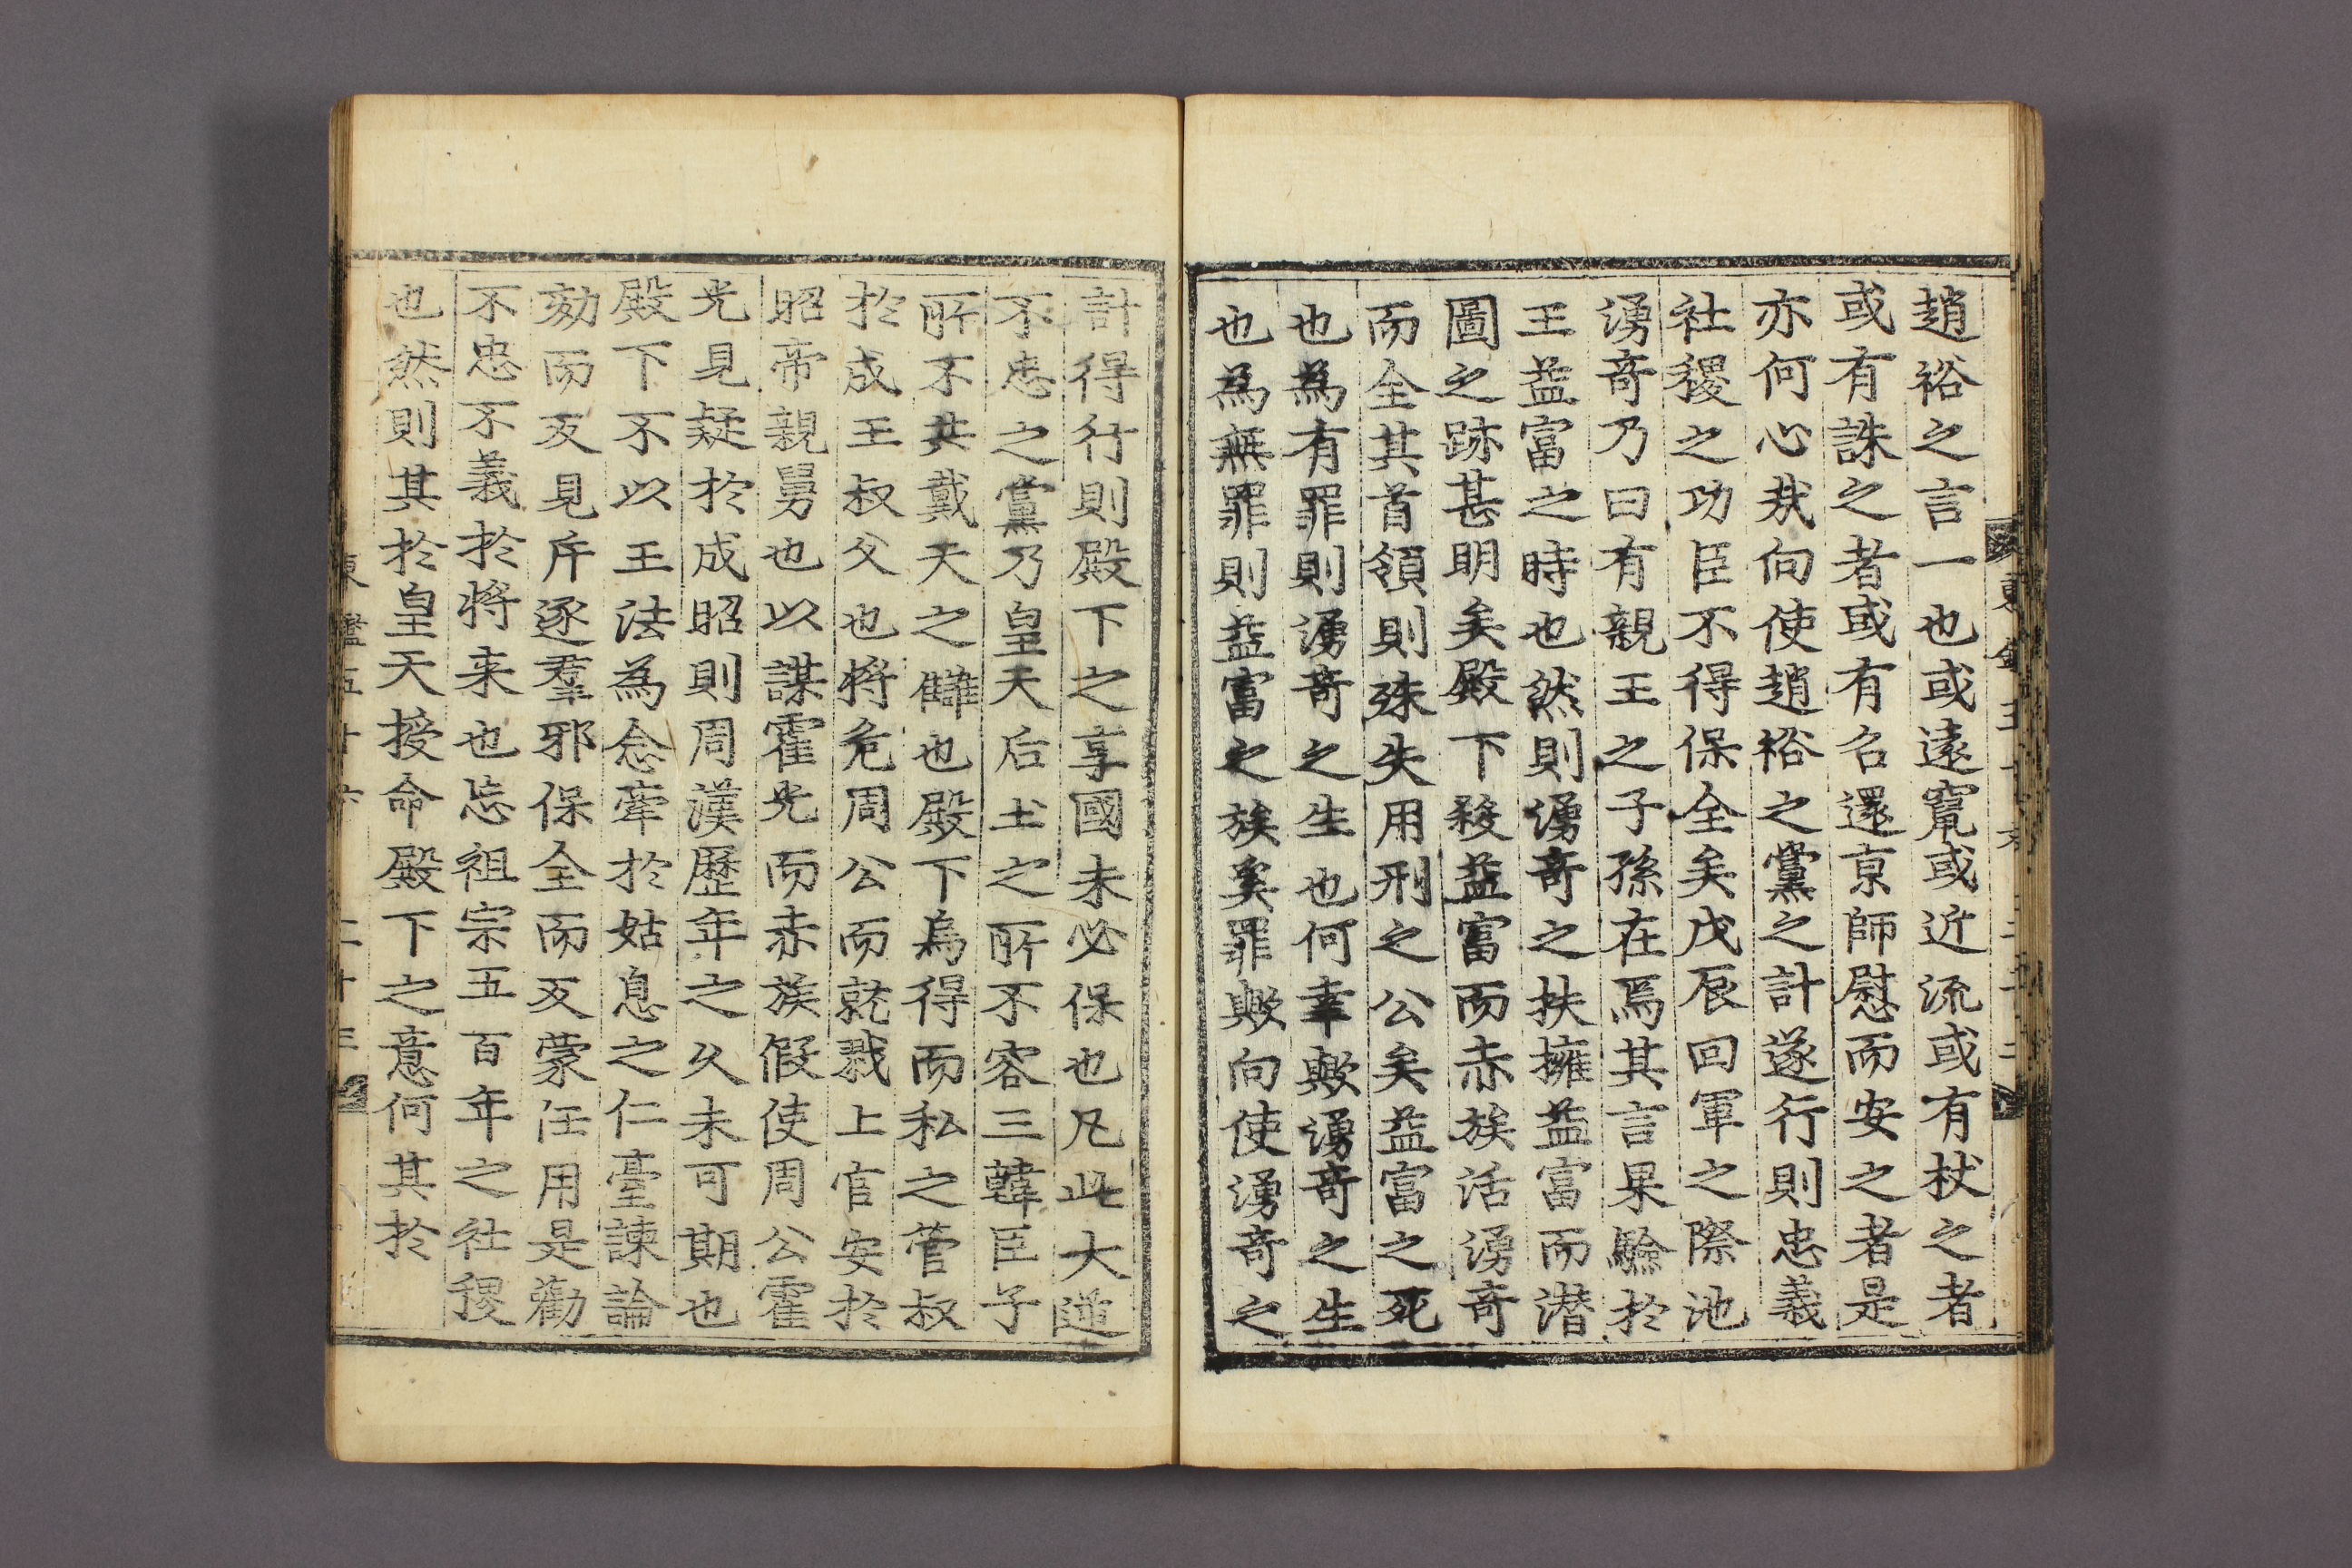 趙裕之言一也或遠竄或近流或有杖之者
或有誅之者或有召還京師慰而安之者是
亦何心㢤向使趙裕之黨之計遂行則忠義
社稷之功臣不得保全矣戊辰回軍之際池
湧竒乃曰有親王之子孫在焉其言果驗於
王益富之時也然則湧竒之扶擁益富而潜
圖之跡甚明矣殿下殺益富而赤族活湧竒
而全其首領則殊失用刑之公矣益富之死
也為有罪則湧竒之生也何幸歟湧竒之生
也為無罪則益富之族奚罪歟向使湧竒之
計得行則殿下之享國未必保也凡此大逆
不忠之黨乃皇天后土之所不容三韓臣子
所不共戴天之讎也殿下焉得而私之管叔
於成王叔父也將危周公而就戮上官安於
昭帝親舅也以謀霍光而赤族假使周公霍
光見疑於成昭則周漢歷年之久未可期也
殿下不以王法為念牽於姑息之仁臺諫論
劾而反見斥逐羣邪保全而反蒙任用是勸
不忠不義於將来也忘祖宗五百年之社稷
也然則其於皇天授命殿下之意何其於